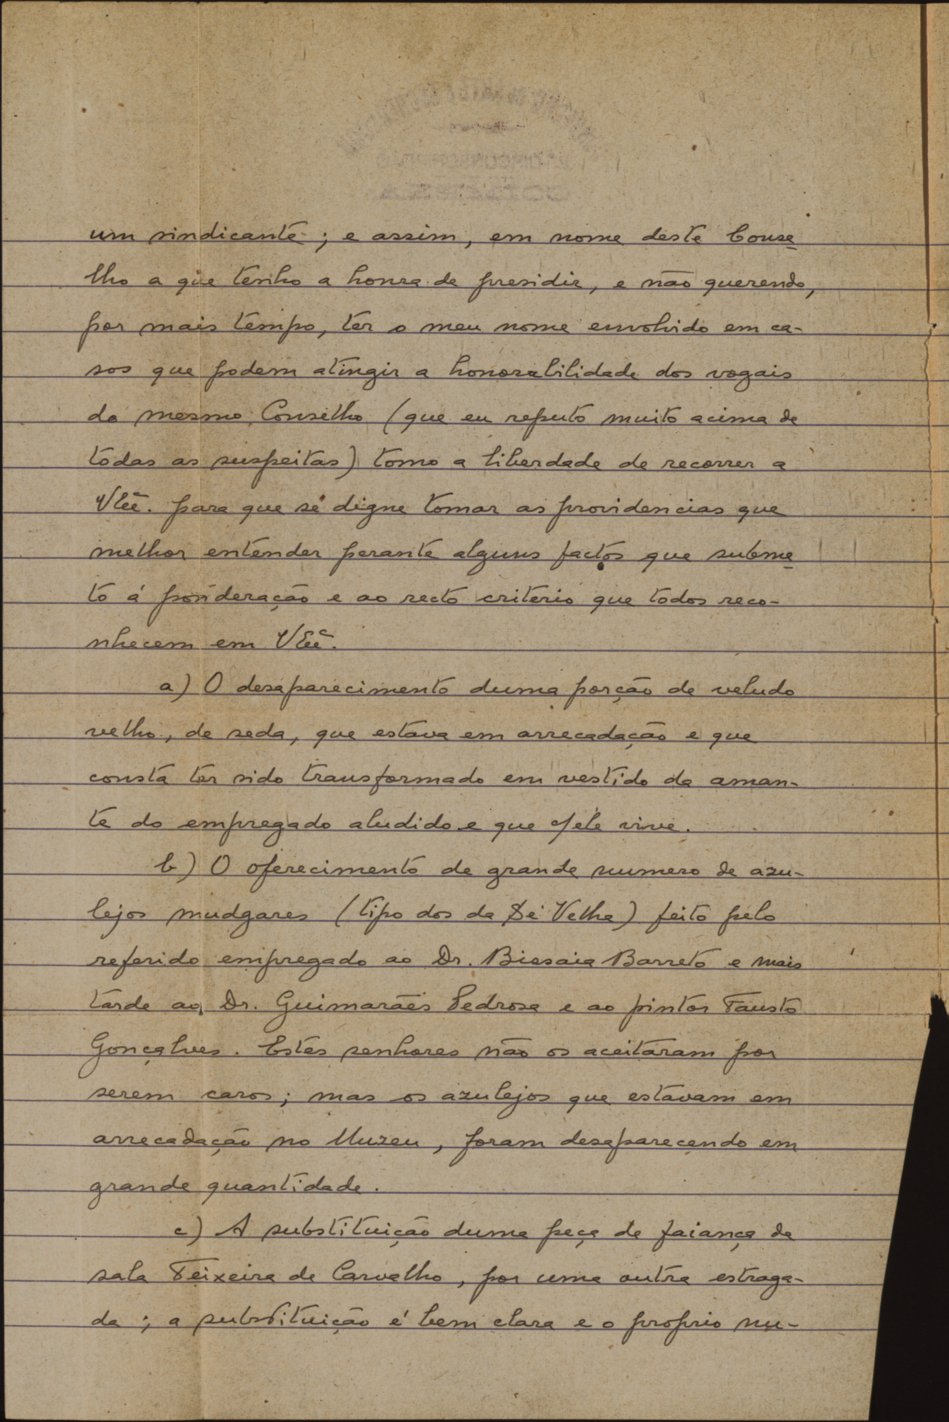 um sindicante; e assim, em nome deste Conse
lho a que tenho a honra de presidir, e não querendo,
por mais tempo, ter o meu nome envolvido em ca-
sos que podem atingir a honorabilidade dos vogais
do mesmo Conselho (que eu reputo muito acima de
tôdas as suspeitas) tomo a liberdade de recorrer a
V. Exª. para que se digne tomar as providencias que
melhor entender perante alguns factos que subme
to á ponderação e ao recto criterio que todos reco-
nhecem em V. Exª.
a) O desaparecimento duma porção de veludo
velho, de seda, que estava em arrecadação e que
consta ter sido transformado em vestido da aman-
te do empregado aludido e que c/ ele vive.
b) O oferecimento de grande numero de azu-
lejos mudgares (tipo dos da Sé Velha) feito pelo
referido empregado ao Dr. Bissaia Barreto e mais
tarde ao Dr. Guimarães Pedrosa e ao pintor Fausto
Gonçalves. Estes senhores não os aceitaram por
serem caros; mas os azulejos que estavam em
arrecadação no Muzeu, foram desaparecendo em
grande quantidade.
c) A substituição duma peça de faiança da
sala Teixeira de Carvalho, por uma outra estraga-
da; a substituição é bem clara e o proprio nu-